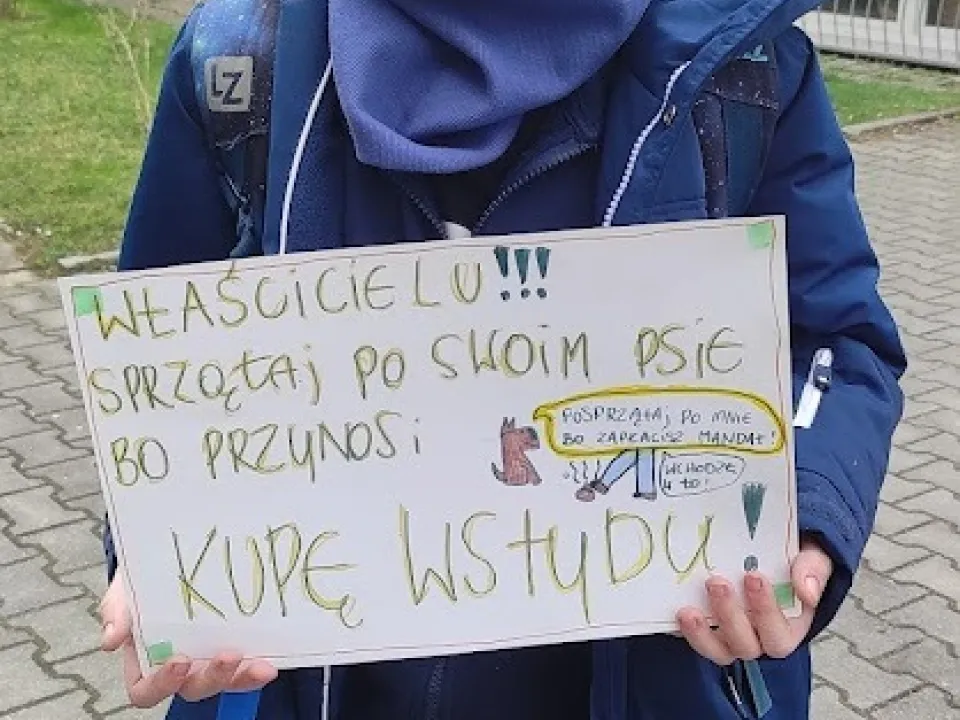 LZ
WŁAŚCICIELU!!!
SPRZĄTAJ PO SWOIM PSIE
BO PRZYNOSI
POSPRZĄTAJ PO MNIE
BO ZAPŁACISZ MANDAT!
WCHODZĘ
W TO!
KUPĘ WSTYDU!